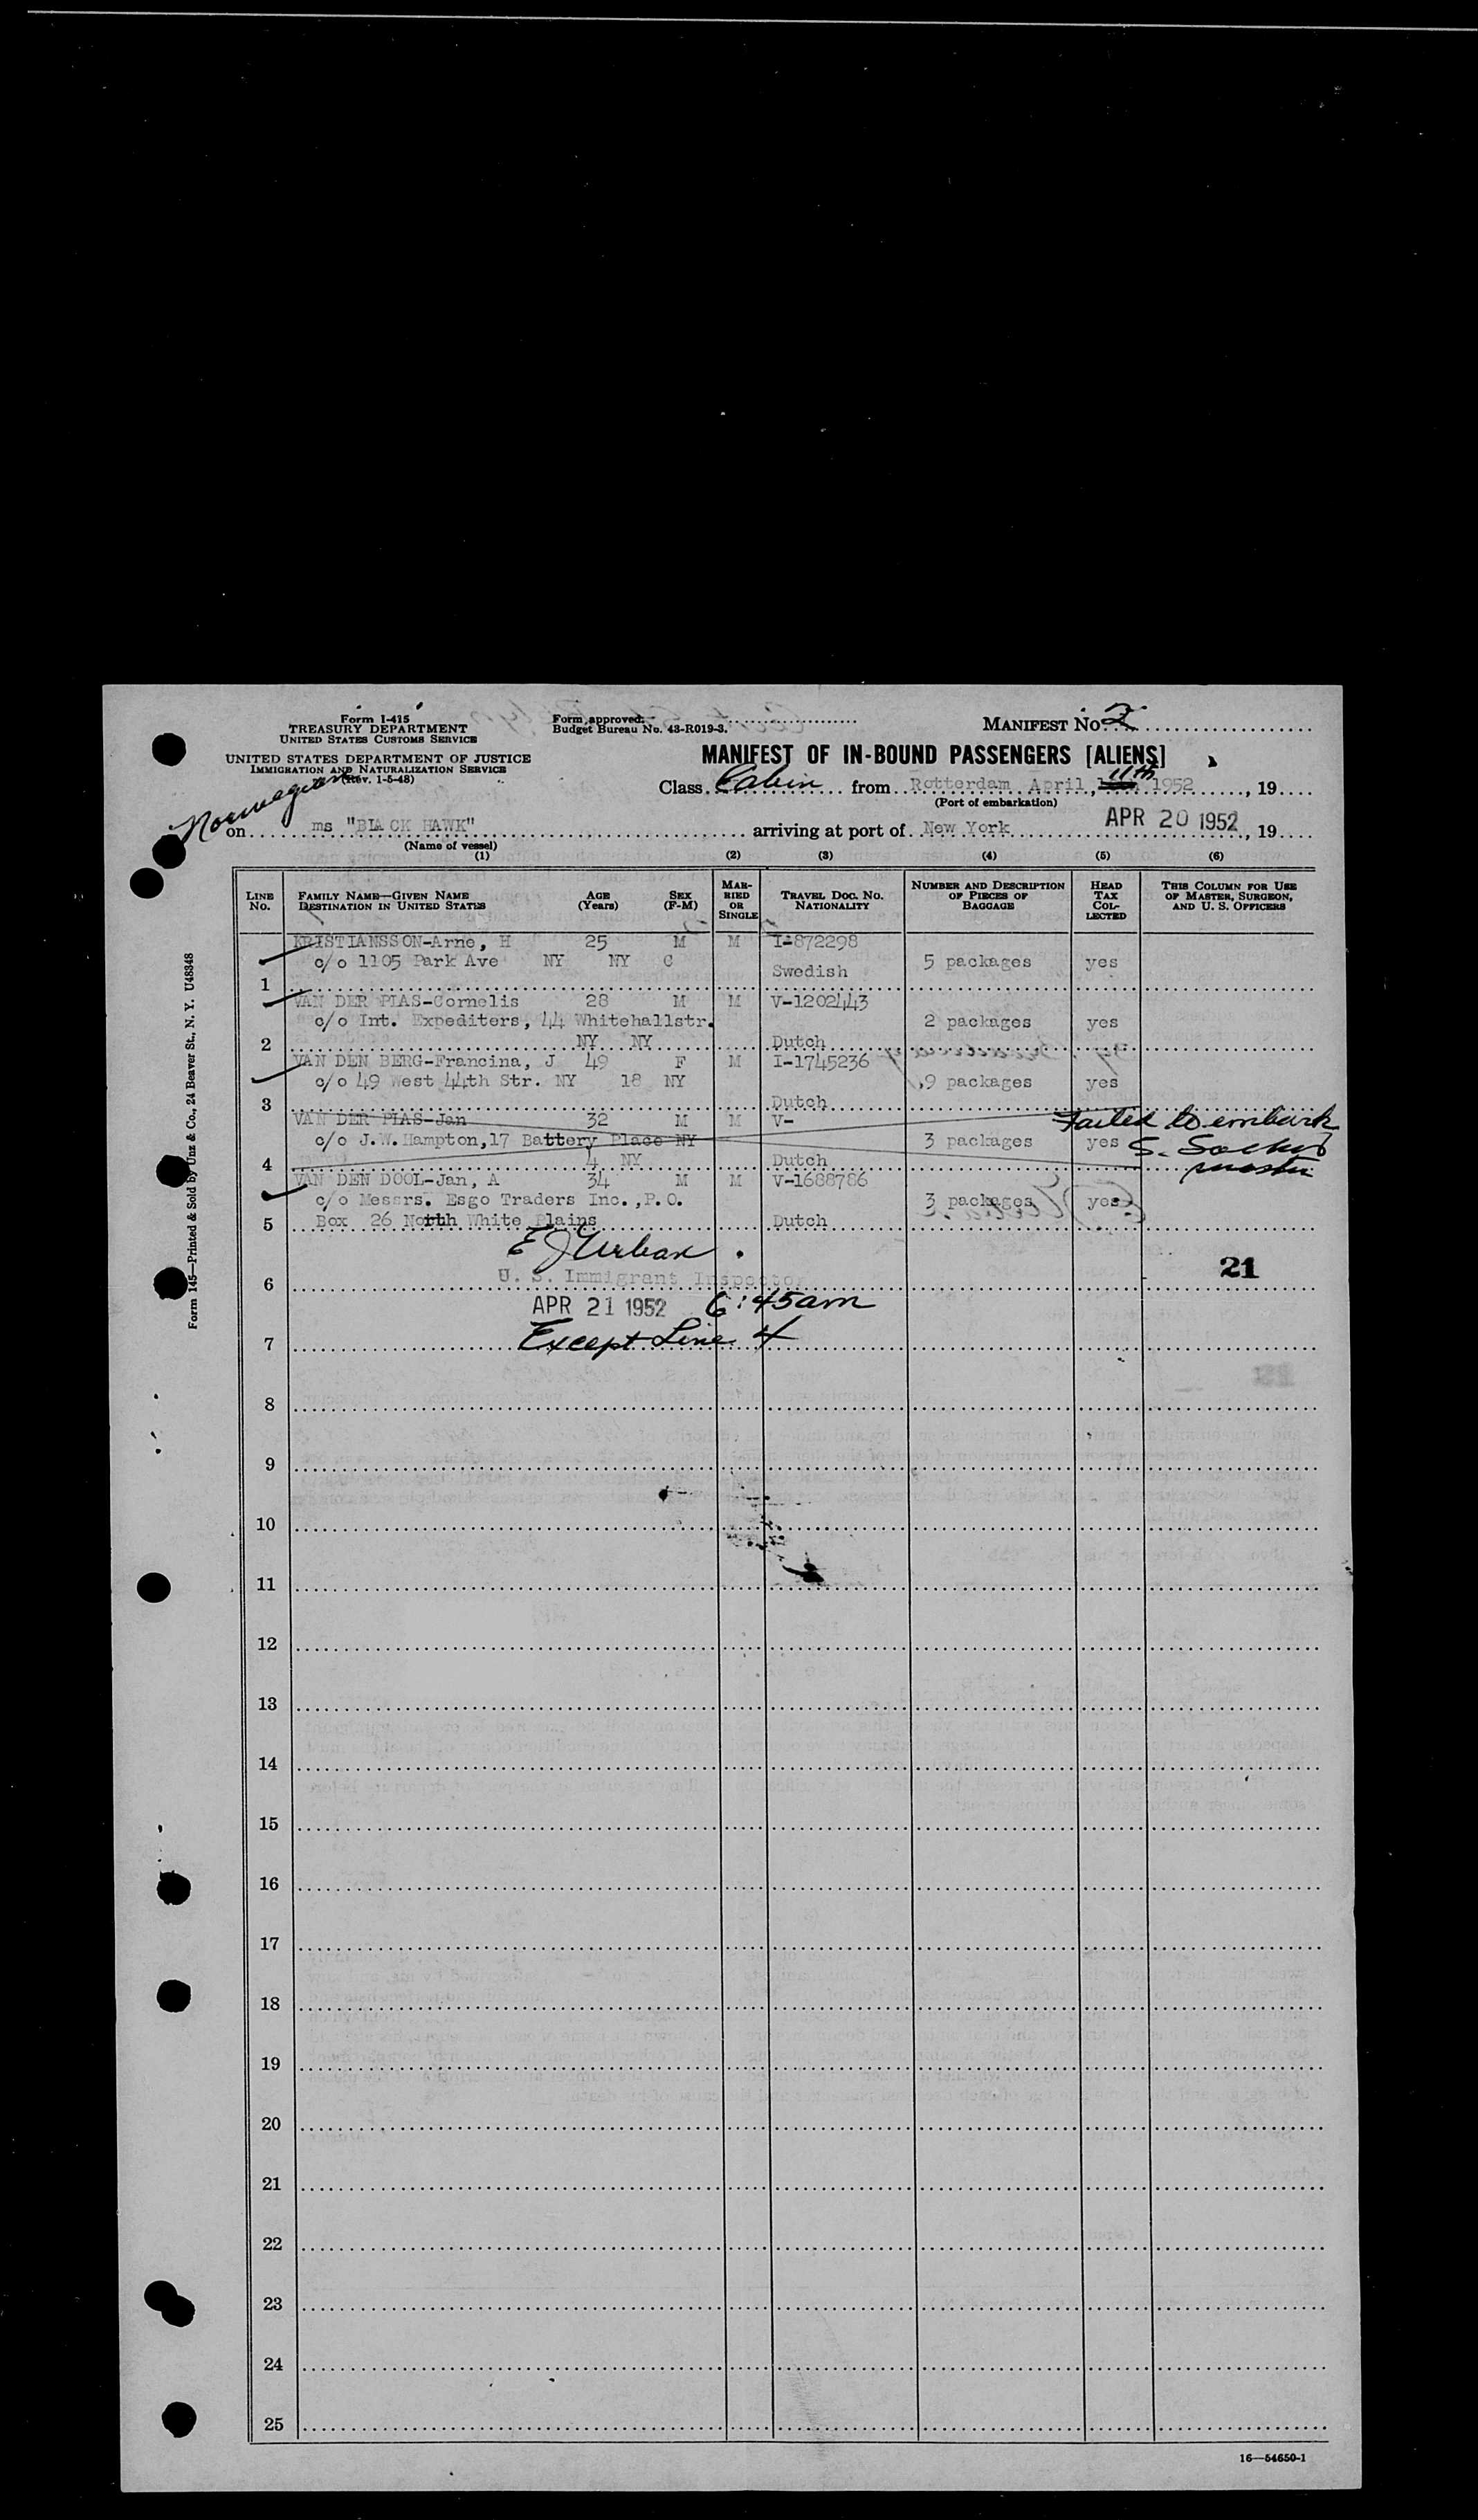 Form I-415
TREASURY DEPARTMENT
UNITED STATES CUSTOMS SERVICE
UNITED STATES DEPARTMENT OF JUSTICE
IMMIGRATION AND NATURALIZATION SERVICE
(Rev. 1-5-48)
Form approved.
Budget Bureau No. 43-R019-3.
MANIFEST No 2
MANIFEST OF IN-BOUND PASSENGERS [ALIENS]
Class Cabin from Rotterdam April, 11th 1952, 19
(Port of embarkation)
Norwegian
on ms "BLACK HAWK" arriving at port of New York APR 20 1952, 19
(Name of vessel)
(1) (2) (3) (4) (5) (6)
LINE No. FAMILY NAME—GIVEN NAME DESTINATION IN UNITED STATES AGE (Years) SEX (F-M) MARRIED OR SINGLE TRAVEL DOC. NO. NATIONALITY NUMBER AND DESCRIPTION OF PIECES OF BAGGAGE HEAD TAX COLLECTED THIS COLUMN FOR USE OF MASTER, SURGEON, AND U. S. OFFICERS
KRISTIANSSON-Arne, H 25 M M I-872298
c/o 1105 Park Ave NY NY C 5 packages yes
1 Swedish
VAN DER PIAS-Cornelis 28 M M V-1202443
c/o Int. Expediters, 44 Whitehallstr. 2 packages yes
2 NY NY Dutch
VAN DEN BERG-Francina, J 49 F M I-1745236
c/o 49 West 44th Str. NY 18 NY 9 packages yes
3 Dutch
VAN DER PIAS-Jan 32 M M V- Failed to embark
c/o J.W. Hampton, 17 Battery Place NY 3 packages yes S.
4 4 NY Dutch master
VAN DEN DOOL-Jan, A 34 M M V-1688786
c/o Messrs. Esgo Traders Inc., P.O. 3 packages yes
5 Box 26 North White Plains Dutch
E J Urban
6 U. S. Immigrant Inspector 21
APR 21 1952 6:45am
7 Except Line 4
8
9
10
11
12
13
14
15
16
17
18
19
20
21
22
23
24
25
16—54650-1
Form 145—Printed & Sold by Unz & Co., 24 Beaver St., N. Y. U48348